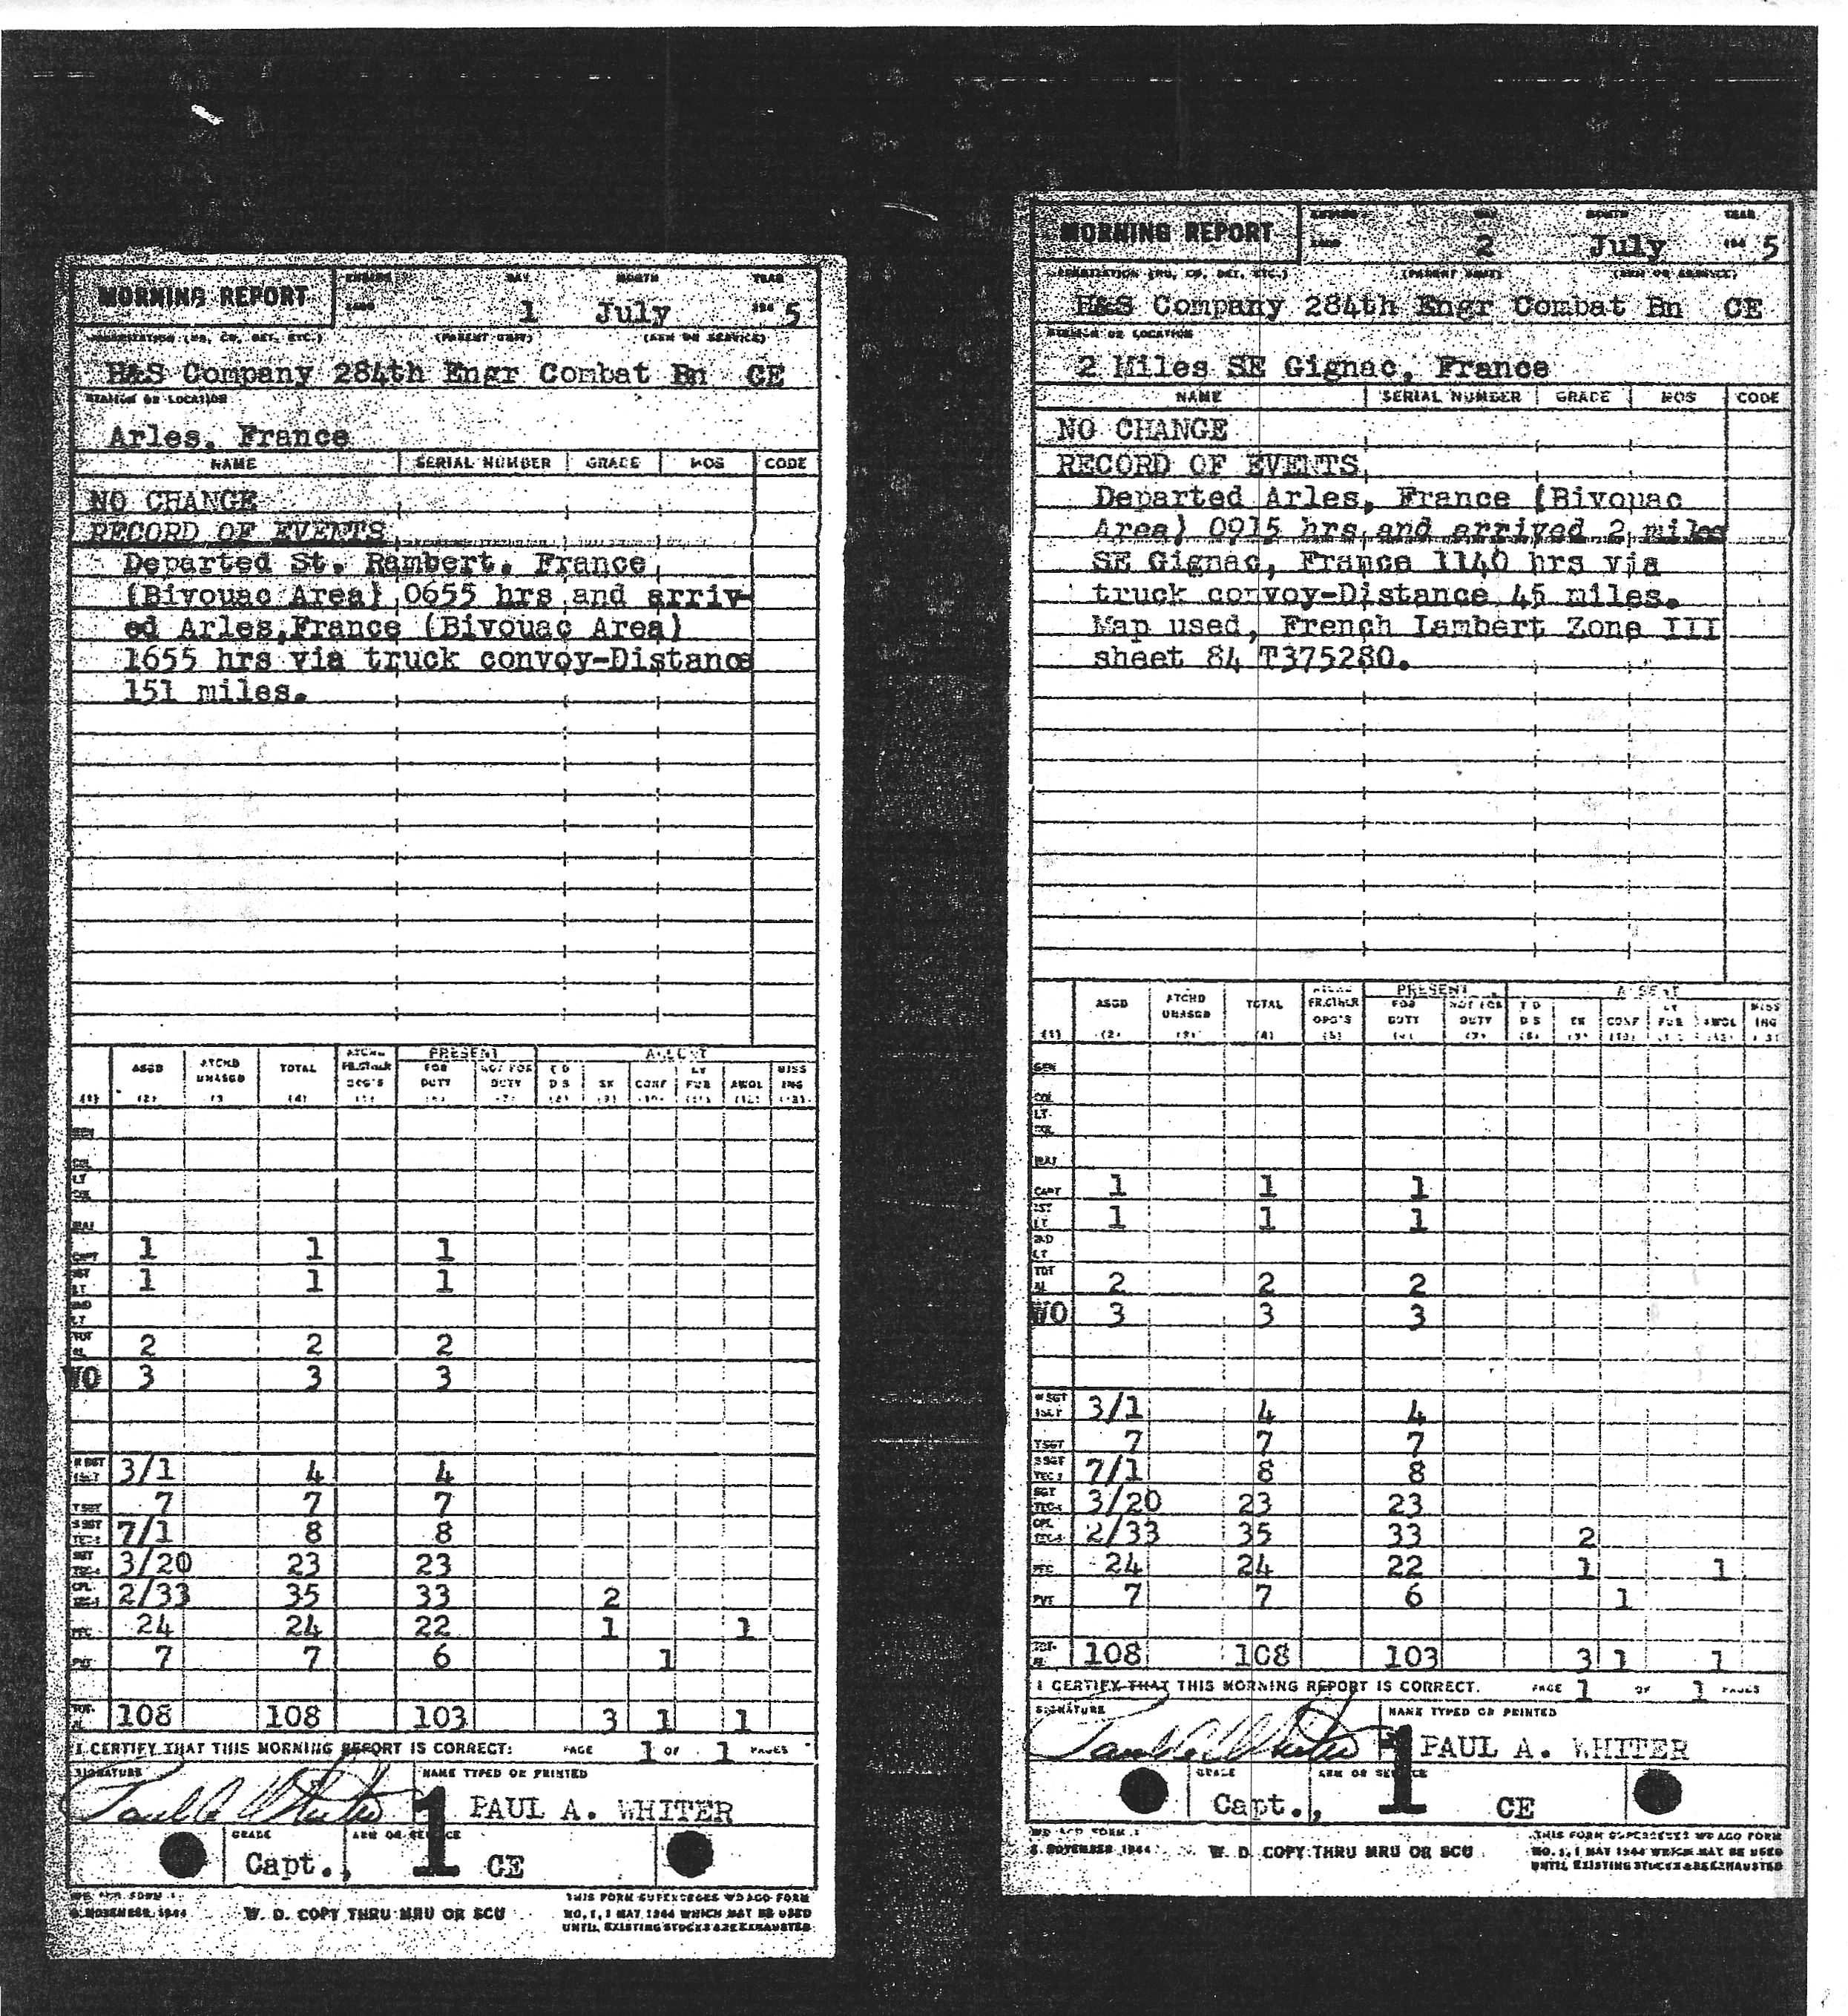 MORNING REPORT
ENDING DAY MONTH YEAR
1 July 5
ORGANIZATION (HQ, CO, DET, ETC.) (PARENT UNIT) (ARM OR SERVICE)
H&S Company 284th Engr Combat Bn CE
STATION OR LOCATION
Arles, France
NAME SERIAL NUMBER GRADE MOS CODE
NO CHANGE
RECORD OF EVENTS
Departed St. Rambert, France
(Bivouac Area) 0655 hrs and arriv-
ed Arles,France (Bivouac Area)
1655 hrs via truck convoy-Distance
151 miles.
PRESENT ABSENT
ASGD ATCHD UNASGD TOTAL FOR DUTY NOT FOR DUTY T D D S SK CONF LV FUR AWOL MISS ING
(1) (2) (4)
COL
LT COL
MAJ
CAPT 1 1 1
1ST LT 1 1 1
2ND LT
TOT AL 2 2 2
WO 3 3 3
M SGT 1SGT 3/1 4 4
TSGT 7 7 7
S SGT TEC3 7/1 8 8
SGT TEC4 3/20 23 23
CPL TEC5 2/33 35 33 2
PFC 24 24 22 1 1
PVT 7 7 6 1
TOT AL 108 108 103 3 1 1
I CERTIFY THAT THIS MORNING REPORT IS CORRECT: PAGE 1 OF 1 PAGES
SIGNATURE NAME TYPED OR PRINTED
Paul A Whiter 1 PAUL A. WHITER
GRADE ARM OR SERVICE
Capt., CE
WD AGO FORM 1
NOVEMBER, 1944 W. D. COPY THRU MRU OR SCU
THIS FORM SUPERSEDES WD AGO FORM
NO. 1, 1 MAY 1944 WHICH MAY BE USED
UNTIL EXISTING STOCKS ARE EXHAUSTED
MORNING REPORT
ENDING DAY MONTH YEAR
2 July 5
ORGANIZATION (HQ, CO, DET, ETC.) (PARENT UNIT) (ARM OR SERVICE)
H&S Company 284th Engr Combat Bn CE
STATION OR LOCATION
2 Miles SE Gignac, France
NAME SERIAL NUMBER GRADE MOS CODE
NO CHANGE
RECORD OF EVENTS
Departed Arles, France (Bivouac
Area) 0915 hrs and arrived 2 miles
SE Gignac, France 1140 hrs via
truck convoy-Distance 45 miles.
Map used, French Lambert Zone III
sheet 84 T375280.
PRESENT ABSENT
ASGD ATCHD UNASGD TOTAL FR.OTHER ORG'S FOR DUTY NOT FOR DUTY T D D S SK CONF LV FUR AWOL MISS ING
(1) (2) (4) (5)
GEN
COL
LT COL
MAJ
CAPT 1 1 1
1ST LT 1 1 1
2ND LT
TOT AL 2 2 2
WO 3 3 3
M SGT 1SGT 3/1 4 4
TSGT 7 7 7
S SGT TEC3 7/1 8 8
SGT TEC4 3/20 23 23
CPL TEC5 2/33 35 33 2
PFC 24 24 22 1 1
PVT 7 7 6 1
TOT AL 108 108 103 3 1 1
I CERTIFY THAT THIS MORNING REPORT IS CORRECT. PAGE 1 OF 1 PAGES
SIGNATURE NAME TYPED OR PRINTED
Paul A Whiter 1 PAUL A. WHITER
GRADE ARM OR SERVICE
Capt., CE
WD AGO FORM 1
NOVEMBER 1944 W. D. COPY THRU MRU OR SCU
THIS FORM SUPERSEDES WD AGO FORM
NO. 1, 1 MAY 1944 WHICH MAY BE USED
UNTIL EXISTING STOCKS ARE EXHAUSTED